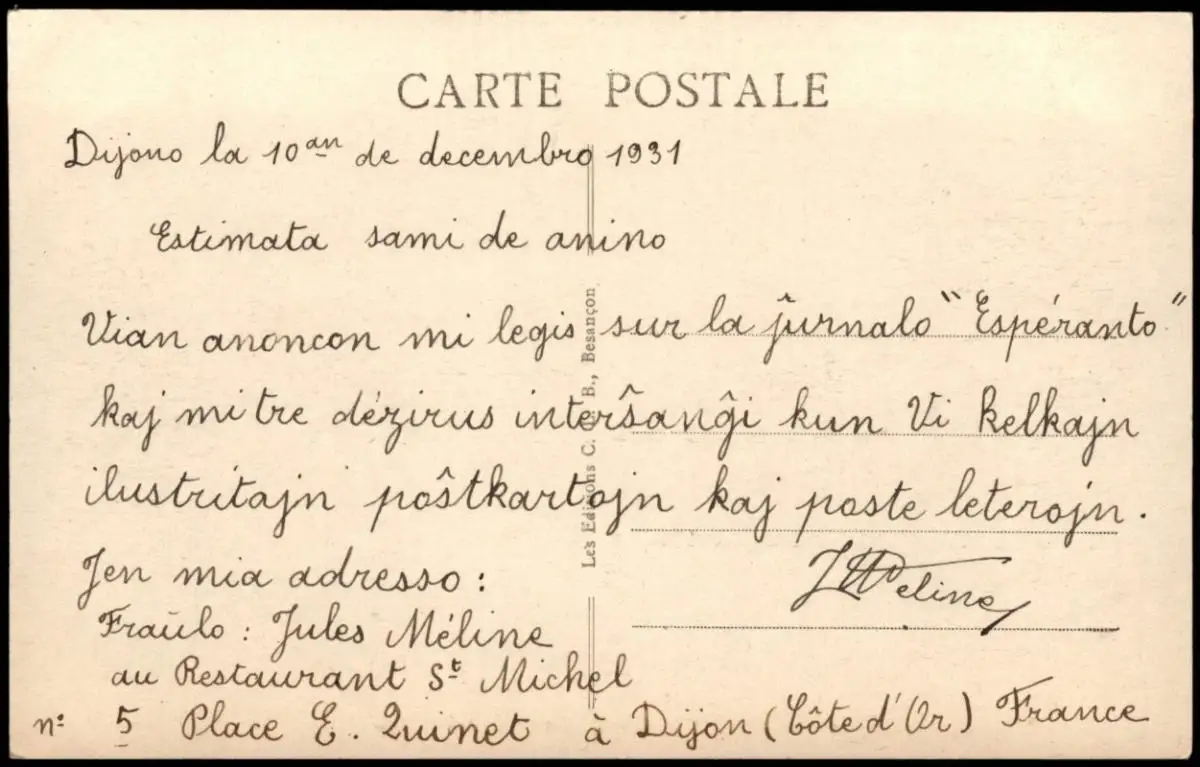 CARTE POSTALE
Dijono la 10an de decembro 1931
Estimata sami de anino
Vian anoncon mi legis sur la ĵurnalo "Espéranto"
kaj mi tre dézirus interŝanĝi kun Vi kelkajn
ilustritajn poŝtkartojn kaj poste leterojn.
Jen mia adresso :
JMeline
Fraŭlo : Jules Méline
au Restaurant St Michel
nº 5 Place E. Quinet à Dijon (Côte d'Or) France
Les Editions C. B., Besançon